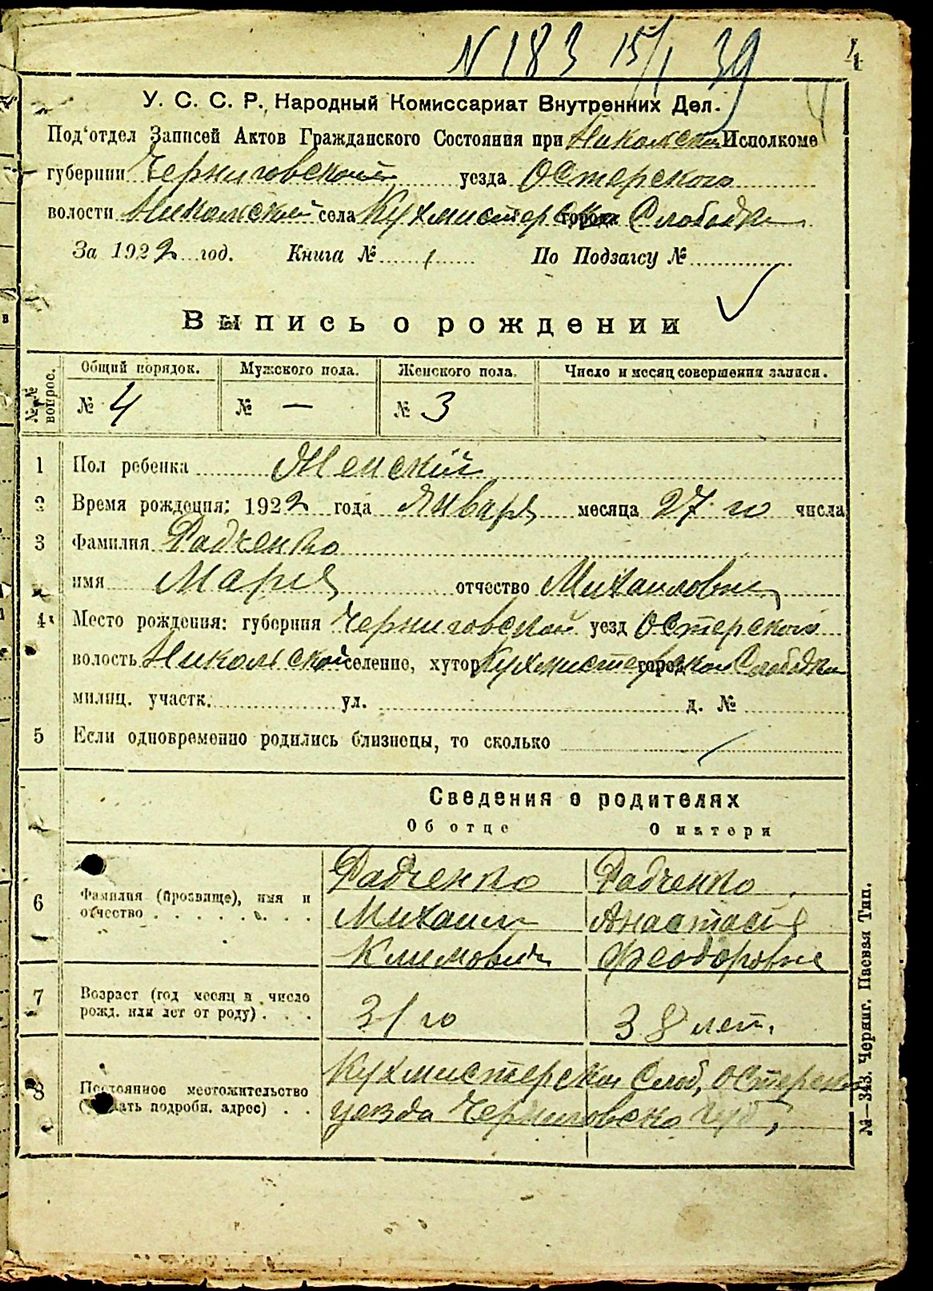 N 183 15/I 39
4
У. С. С. Р. Народный Комиссариат Внутренних Дел.
Под'отдел Записей Актов Гражданского Состояния при Никольском Исполкоме
губернии Черниговской уезда Остерского
волости Никольской села Кухмистерско города Слободки
За 1922 год. Книга № 1 По Подзагсу №
Выпись о рождении
№№ вопрос.
Общий порядок. Мужского пола. Женского пола. Число и месяц совершения записи.
№ 4 № — № 3
1 Пол ребенка Женский
2 Время рождения: 1922 года Января месяца 27 го числа
3 Фамилия Радченко
имя Мария отчество Михайловна
4 Место рождения: губерния Черниговской уезд Остерского
волость Никольской селение, хутор Кухмистерской город Слободки
милиц. участк. ул. д. №
5 Если одновременно родились близнецы, то сколько
Сведения о родителях
Об отце О матери
Радченко Радченко
6 Фамилия (прозвище), имя и
отчество Михаил Анастасия
Климович Феодоровна
7 Возраст (год месяц и число
рожд. или лет от роду) 31 го 38 лет.
Кухмистерской Слоб, Остерско
8 Постоянное местожительство
(указать подробн. адрес) уезда Черниговско губ,
№—343. Черниг. Паевая Тип.